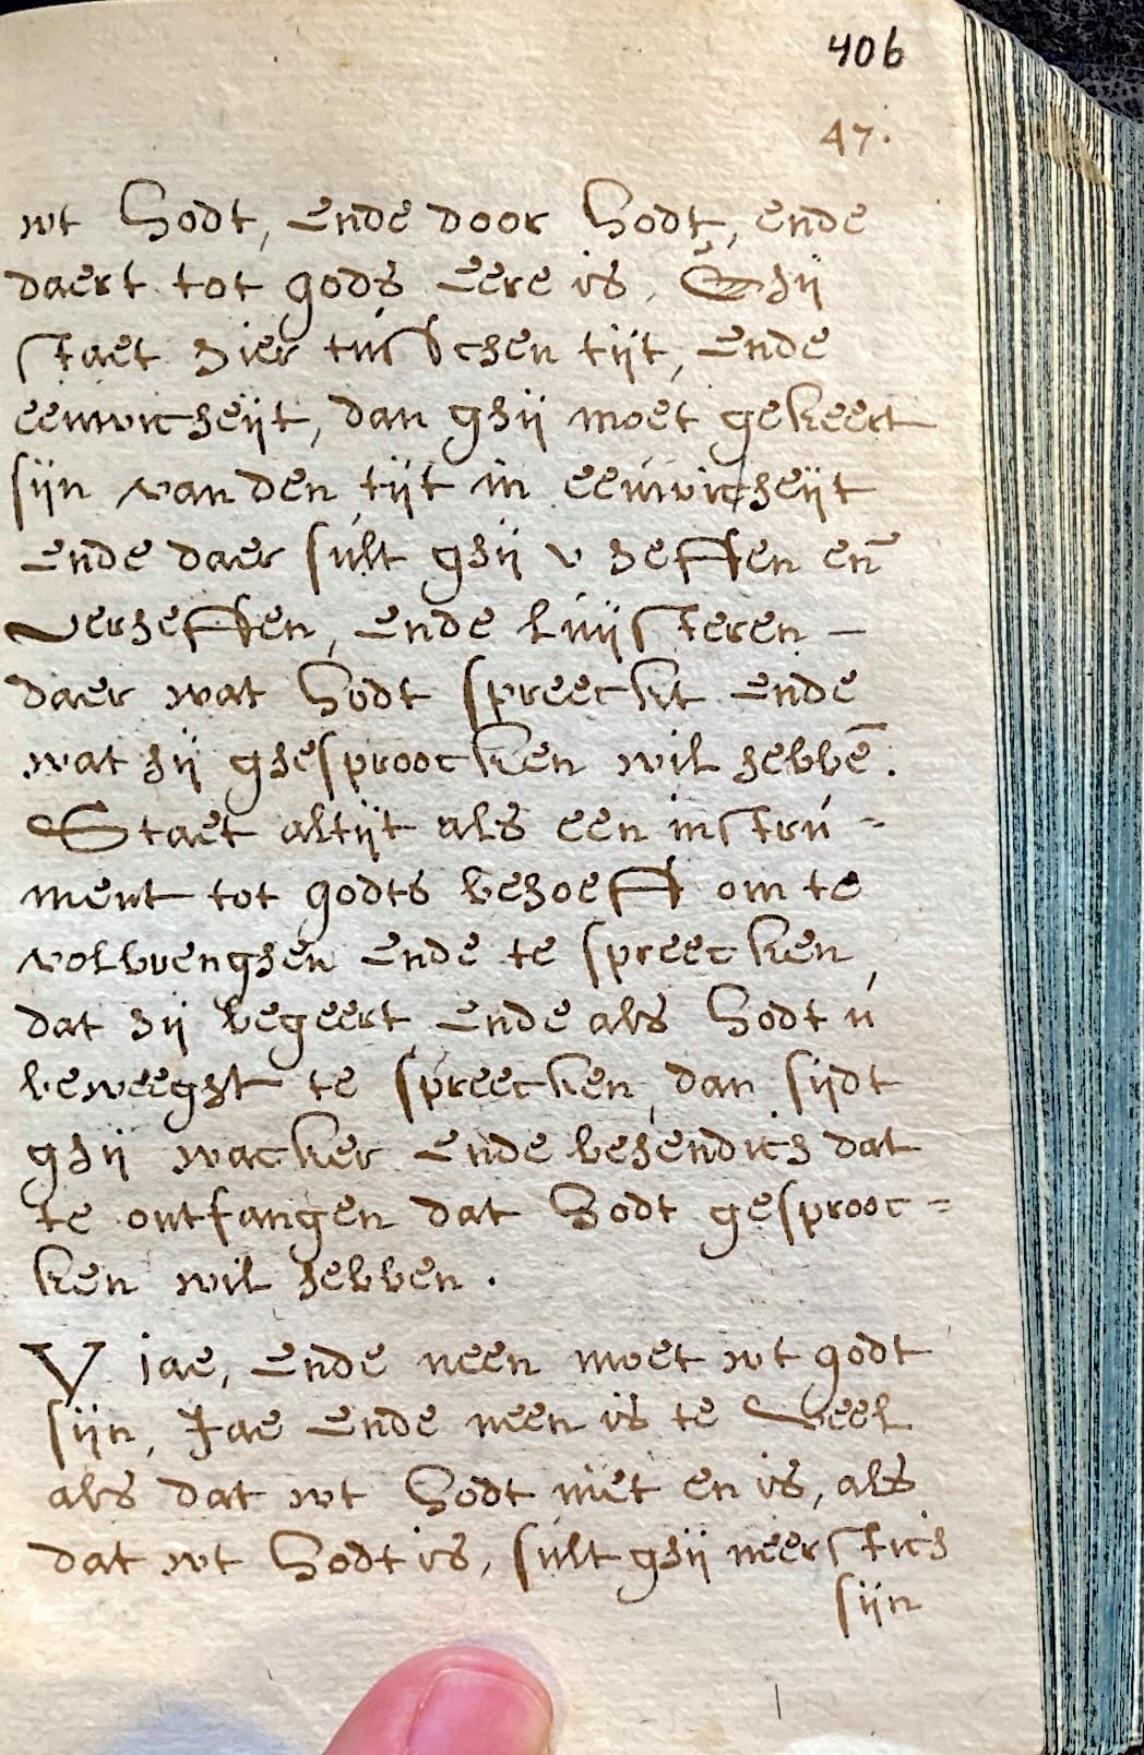 406
47.
wt Godt, ende door Godt, ende
daert tot gods eere is, Ghij
staet hier tusschen tijt, ende
eeuwicheijt, dan ghij moet gekeert
sijn van den tijt in eeúwicheijt
ende daer súlt ghij v heffen en̄
verheffen, ende lúijsteren –
daer wat Godt spreeckt ende
wat hij ghesproocken wil hebbē.
Staet altijt als een instrú=
ment tot godts behoeft om te
volbrenghen ende te spreecken,
dat hij begeert, ende als Godt ú
beweeght te spreecken, dan sijdt
ghij wacker ende behendich dat
te ontfangen dat Godt gesprooc=
ken wil hebben.
V jae, ende neen moet wt godt
sijn, Jae ende neen is te veel
als dat wt Godt niet en is, als
dat wt Godt is, súlt ghij neerstich
sijn